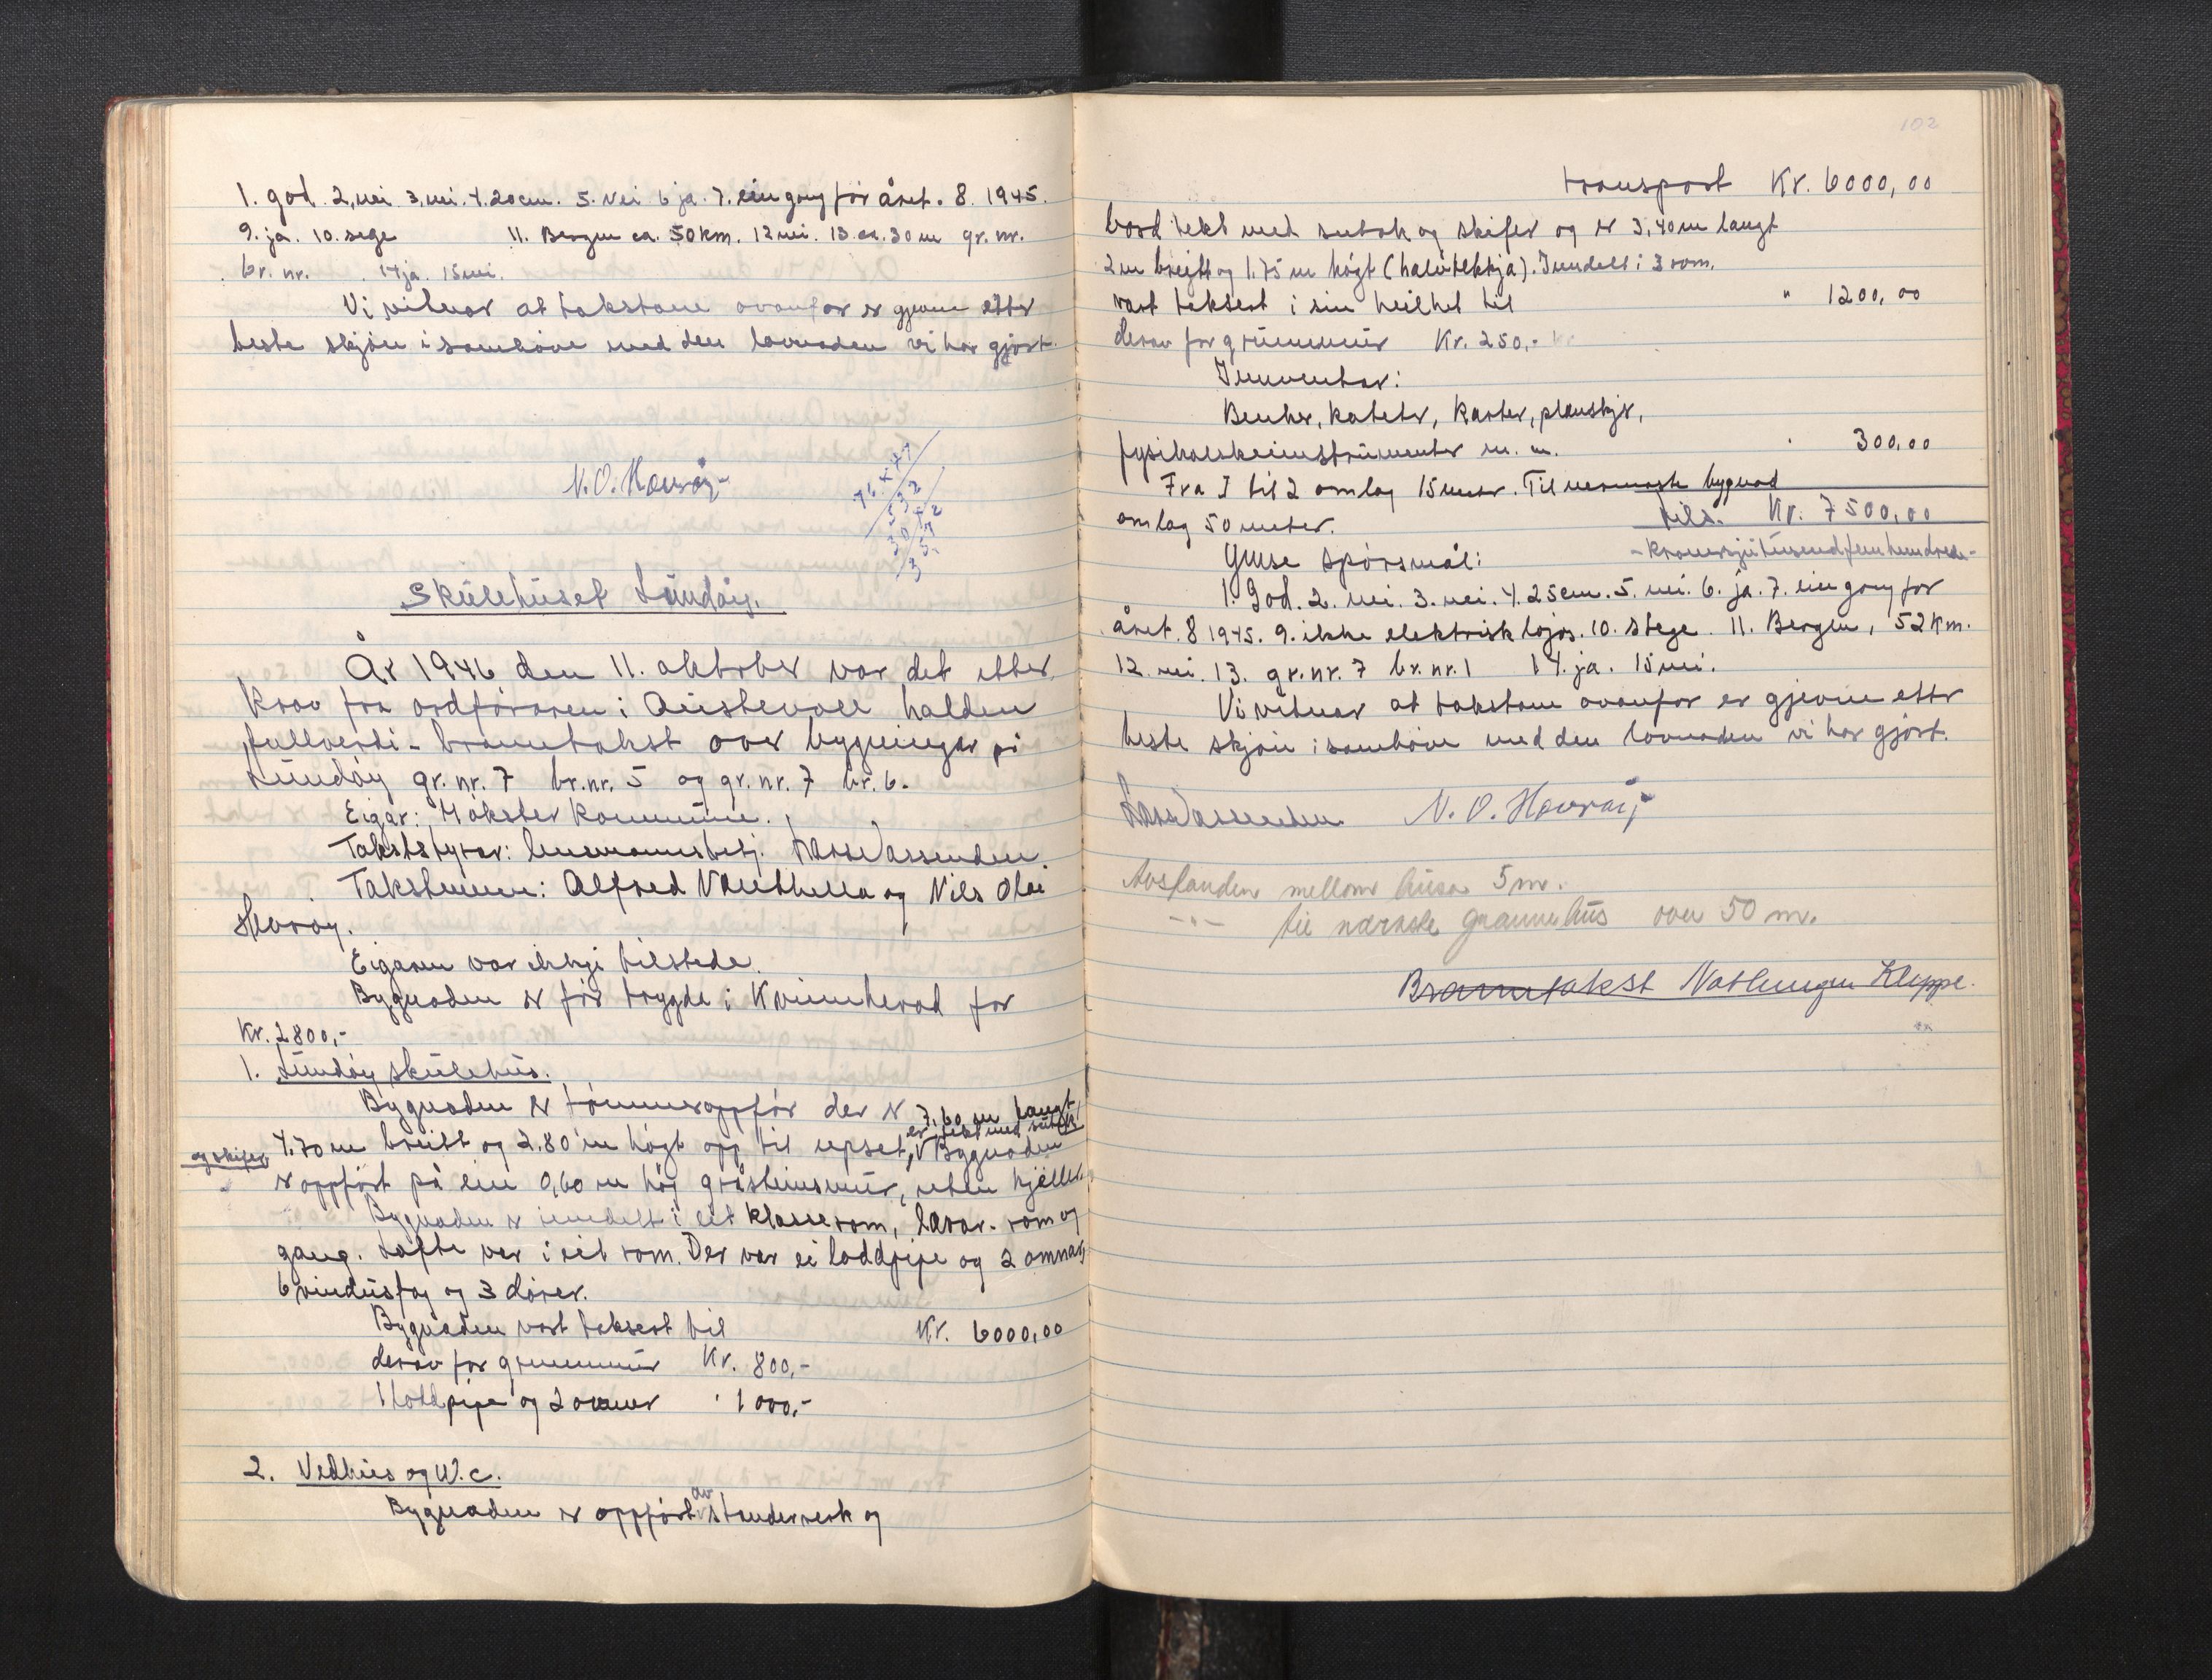 1. god. 2, nei 3, nei. 4. 20cm. 5. Nei 6 ja. 7. ein gong for året. 8. 1945.
9. ja. 10. sege 11. Bergen ca. 50 km. 12 nei. 13. ca. 30 m gr. nr.
br. nr. 14 ja. 15 nei.
Vi vitnar at takstane ovanfor er gjevne etter
beste skjøn i samhöve med den lovnaden vi har gjort.
N. O. Havröy
76 x 47
532
304
3572
Skulehuset Lundöy.
År 1946 den 11. oktober var det etter
krav fra ordföraren i Austevoll halden
fullverdi-branntakst over bygningar på
Lundöy gr. nr. 7 br. nr. 5 og gr. nr. 7 br. 6.
Eigar: Mökster kommune.
Takststyrar: lensmannsbetj. Lars Vassenden.
Takstmenn: Alfred Vauthella og Nils Olai
Havröy.
Eigaren var ikkje tilstede.
Bygnaden er för trygda i Kvinnherad for
Kr. 2800,-
1. Lundöy skulehus.
Bygnaden er tömmeroppför der er 7,60 m langt,
4.70 m breitt og 2.80 m högt opp til upset, er tekt med sutak
og skifer
Bygnaden
er oppfört på ein 0,60 m hög gråsteinsmur, uten kjeller.
Bygnaden er inndelt i eit klasserom, lærar-rom og
gang. Lofte ver i eit rom. Der var ei loddpipe og 2 omnar,
6 vindusfag og 3 dörer.
Bygnaden vart taksert til Kr. 6000,00
derav for grunnmur Kr. 800,-
1 loddpipe og 2 omner " 1000,-
2. Vedhus og W.c.
Bygnaden er oppfört av standerverk og
102
transport Kr. 6000,00
bord tekt med sutak og skifer og er 3,40 m langt
2 m breitt og 1.75 m högt (halvtekkja). Inndelt i 3 rom.
vart taksert i sin heilhet til " 1200,00
derav for grunnmur Kr. 250,-
Innventar:
Benker, kateter, karter, plansjer,
fysikalske instrumenter m. m. " 300,00
Fra 1 til 2 omlag 15 meter. Til nermaste bygnad
omlag 50 meter. tils. Kr. 7500,00
- kroner sju tusend fem hundrede -
Ymse spörsmål:
1. God. 2. nei. 3. nei. 4. 25cm. 5. nei. 6. ja. 7. ein gong for
året. 8 1945. 9. ikke elektrisk lojos. 10. stege. 11. Bergen, 52 km.
12 nei. 13. gr. nr. 7 br. nr. 1 14. ja. 15 nei.
Vi vitnar at takstane ovanfor er gjevne etter
beste skjön i samhöve med den lovnaden vi har gjort.
Lars Vassenden N. O. Havröy
Avstanden mellom husa 5 m.
-"- til næraste grannehus over 50 m.
Branntakst Notlengen Kleppe.